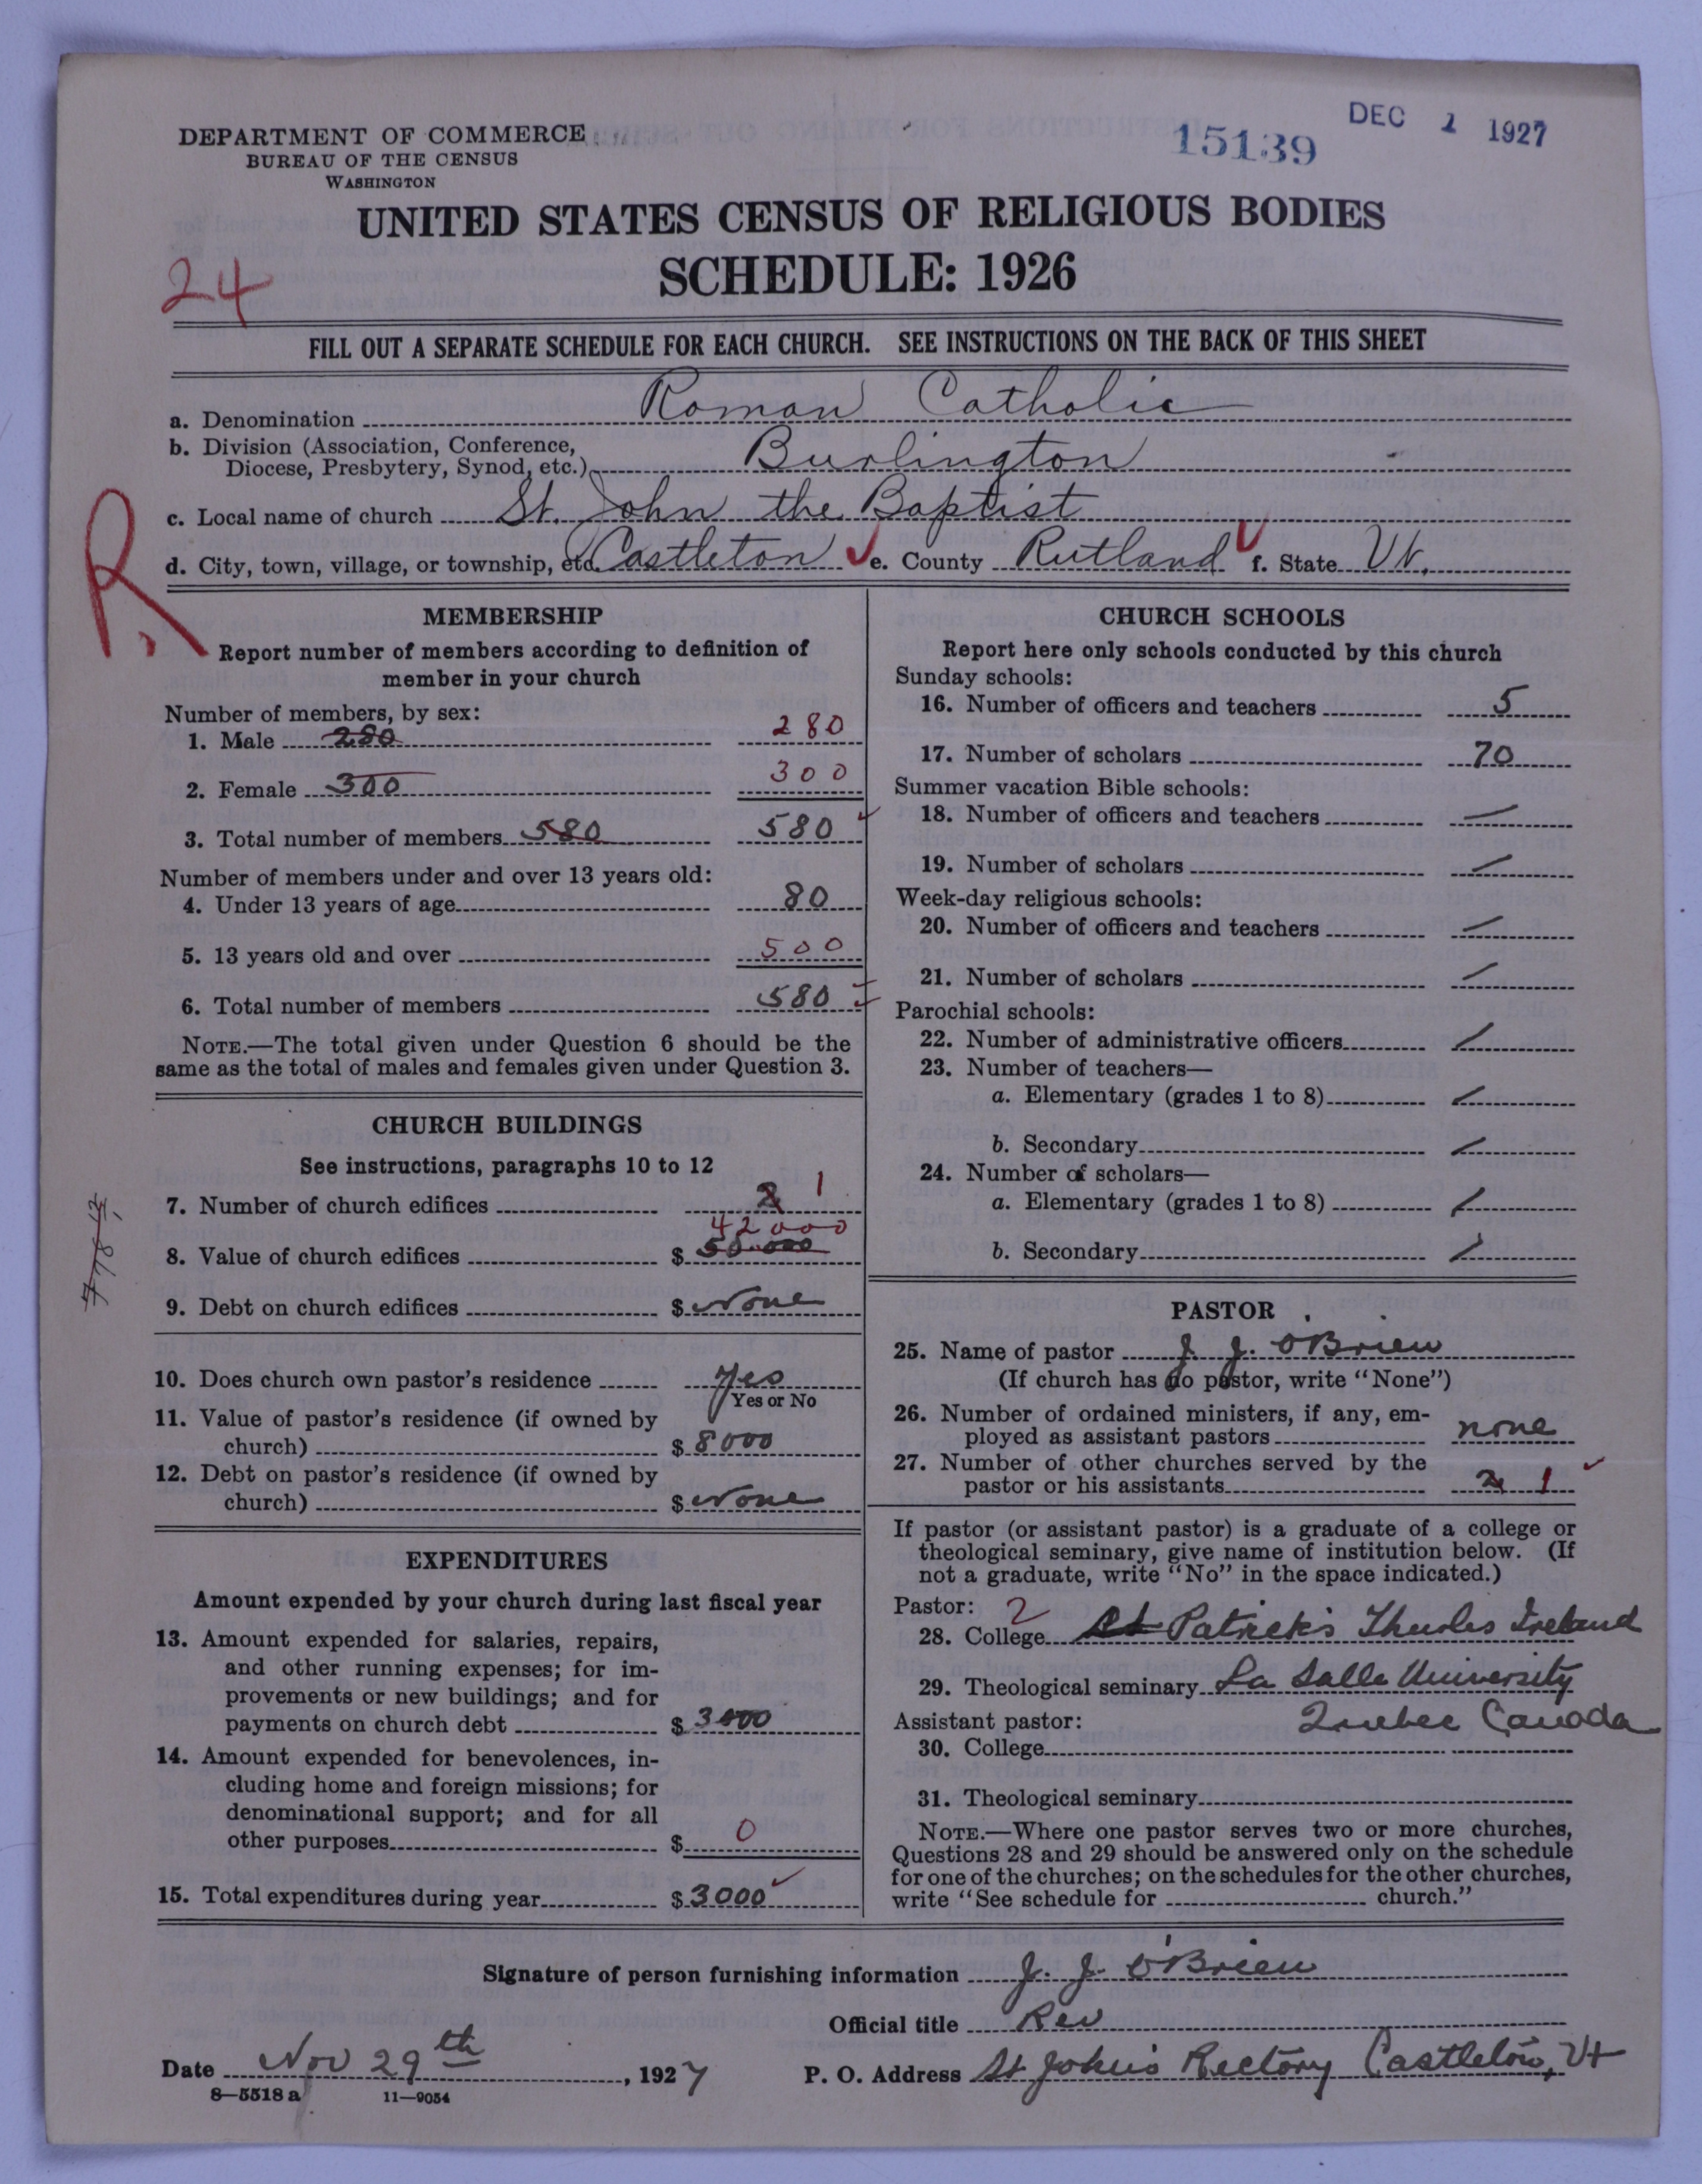 DEPARTMENT OF COMMERCE
BUREAU OF THE CENSUS
WASHINGTON
15139
DEC 1 1927
UNITED STATES CENSUS OF RELIGIOUS BODIES
SCHEDULE: 1926
24
FILL OUT A SEPARATE SCHEDULE FOR EACH CHURCH. SEE INSTRUCTIONS ON THE BACK OF THIS SHEET
a. Denomination Roman Catholic
b. Division (Association, Conference,
Diocese, Presbytery, Synod, etc.) Burlington
c. Local name of church St. John the Baptist
d. City, town, village, or township, etc. Castleton e. County Rutland f. State Vt.
R.
MEMBERSHIP
Report number of members according to definition of
member in your church
Number of members, by sex:
1. Male 280 280
2. Female 300 300
3. Total number of members 580 580
Number of members under and over 13 years old:
4. Under 13 years of age 80
5. 13 years old and over 500
6. Total number of members 580
NOTE.—The total given under Question 6 should be the
same as the total of males and females given under Question 3.
CHURCH BUILDINGS
See instructions, paragraphs 10 to 12
7. Number of church edifices 2 1
42000
8. Value of church edifices $ 50.000
9. Debt on church edifices $ None
10. Does church own pastor's residence Yes
Yes or No
11. Value of pastor's residence (if owned by
church) $ 8000
12. Debt on pastor's residence (if owned by
church) $ None
EXPENDITURES
Amount expended by your church during last fiscal year
13. Amount expended for salaries, repairs,
and other running expenses; for im-
provements or new buildings; and for
payments on church debt $ 3000
14. Amount expended for benevolences, in-
cluding home and foreign missions; for
denominational support; and for all
other purposes $ 0
15. Total expenditures during year $ 3000
CHURCH SCHOOLS
Report here only schools conducted by this church
Sunday schools:
16. Number of officers and teachers 5
17. Number of scholars 70
Summer vacation Bible schools:
18. Number of officers and teachers —
19. Number of scholars —
Week-day religious schools:
20. Number of officers and teachers —
21. Number of scholars —
Parochial schools:
22. Number of administrative officers —
23. Number of teachers—
a. Elementary (grades 1 to 8) —
b. Secondary —
24. Number of scholars—
a. Elementary (grades 1 to 8) —
b. Secondary —
PASTOR
25. Name of pastor J. J. O'Brien
(If church has no pastor, write "None")
26. Number of ordained ministers, if any, em-
ployed as assistant pastors none
27. Number of other churches served by the
pastor or his assistants 2 1
If pastor (or assistant pastor) is a graduate of a college or
theological seminary, give name of institution below. (If
not a graduate, write "No" in the space indicated.)
Pastor: 2
28. College St Patrick's Thurles Ireland
29. Theological seminary La Salle University
Quebec Canada
Assistant pastor:
30. College
31. Theological seminary
NOTE.—Where one pastor serves two or more churches,
Questions 28 and 29 should be answered only on the schedule
for one of the churches; on the schedules for the other churches,
write "See schedule for church."
Signature of person furnishing information J. J. O'Brien
Official title Rev
Date Nov 29th, 1927 P. O. Address St John's Rectory Castleton, Vt
8—5518 a 11—9054